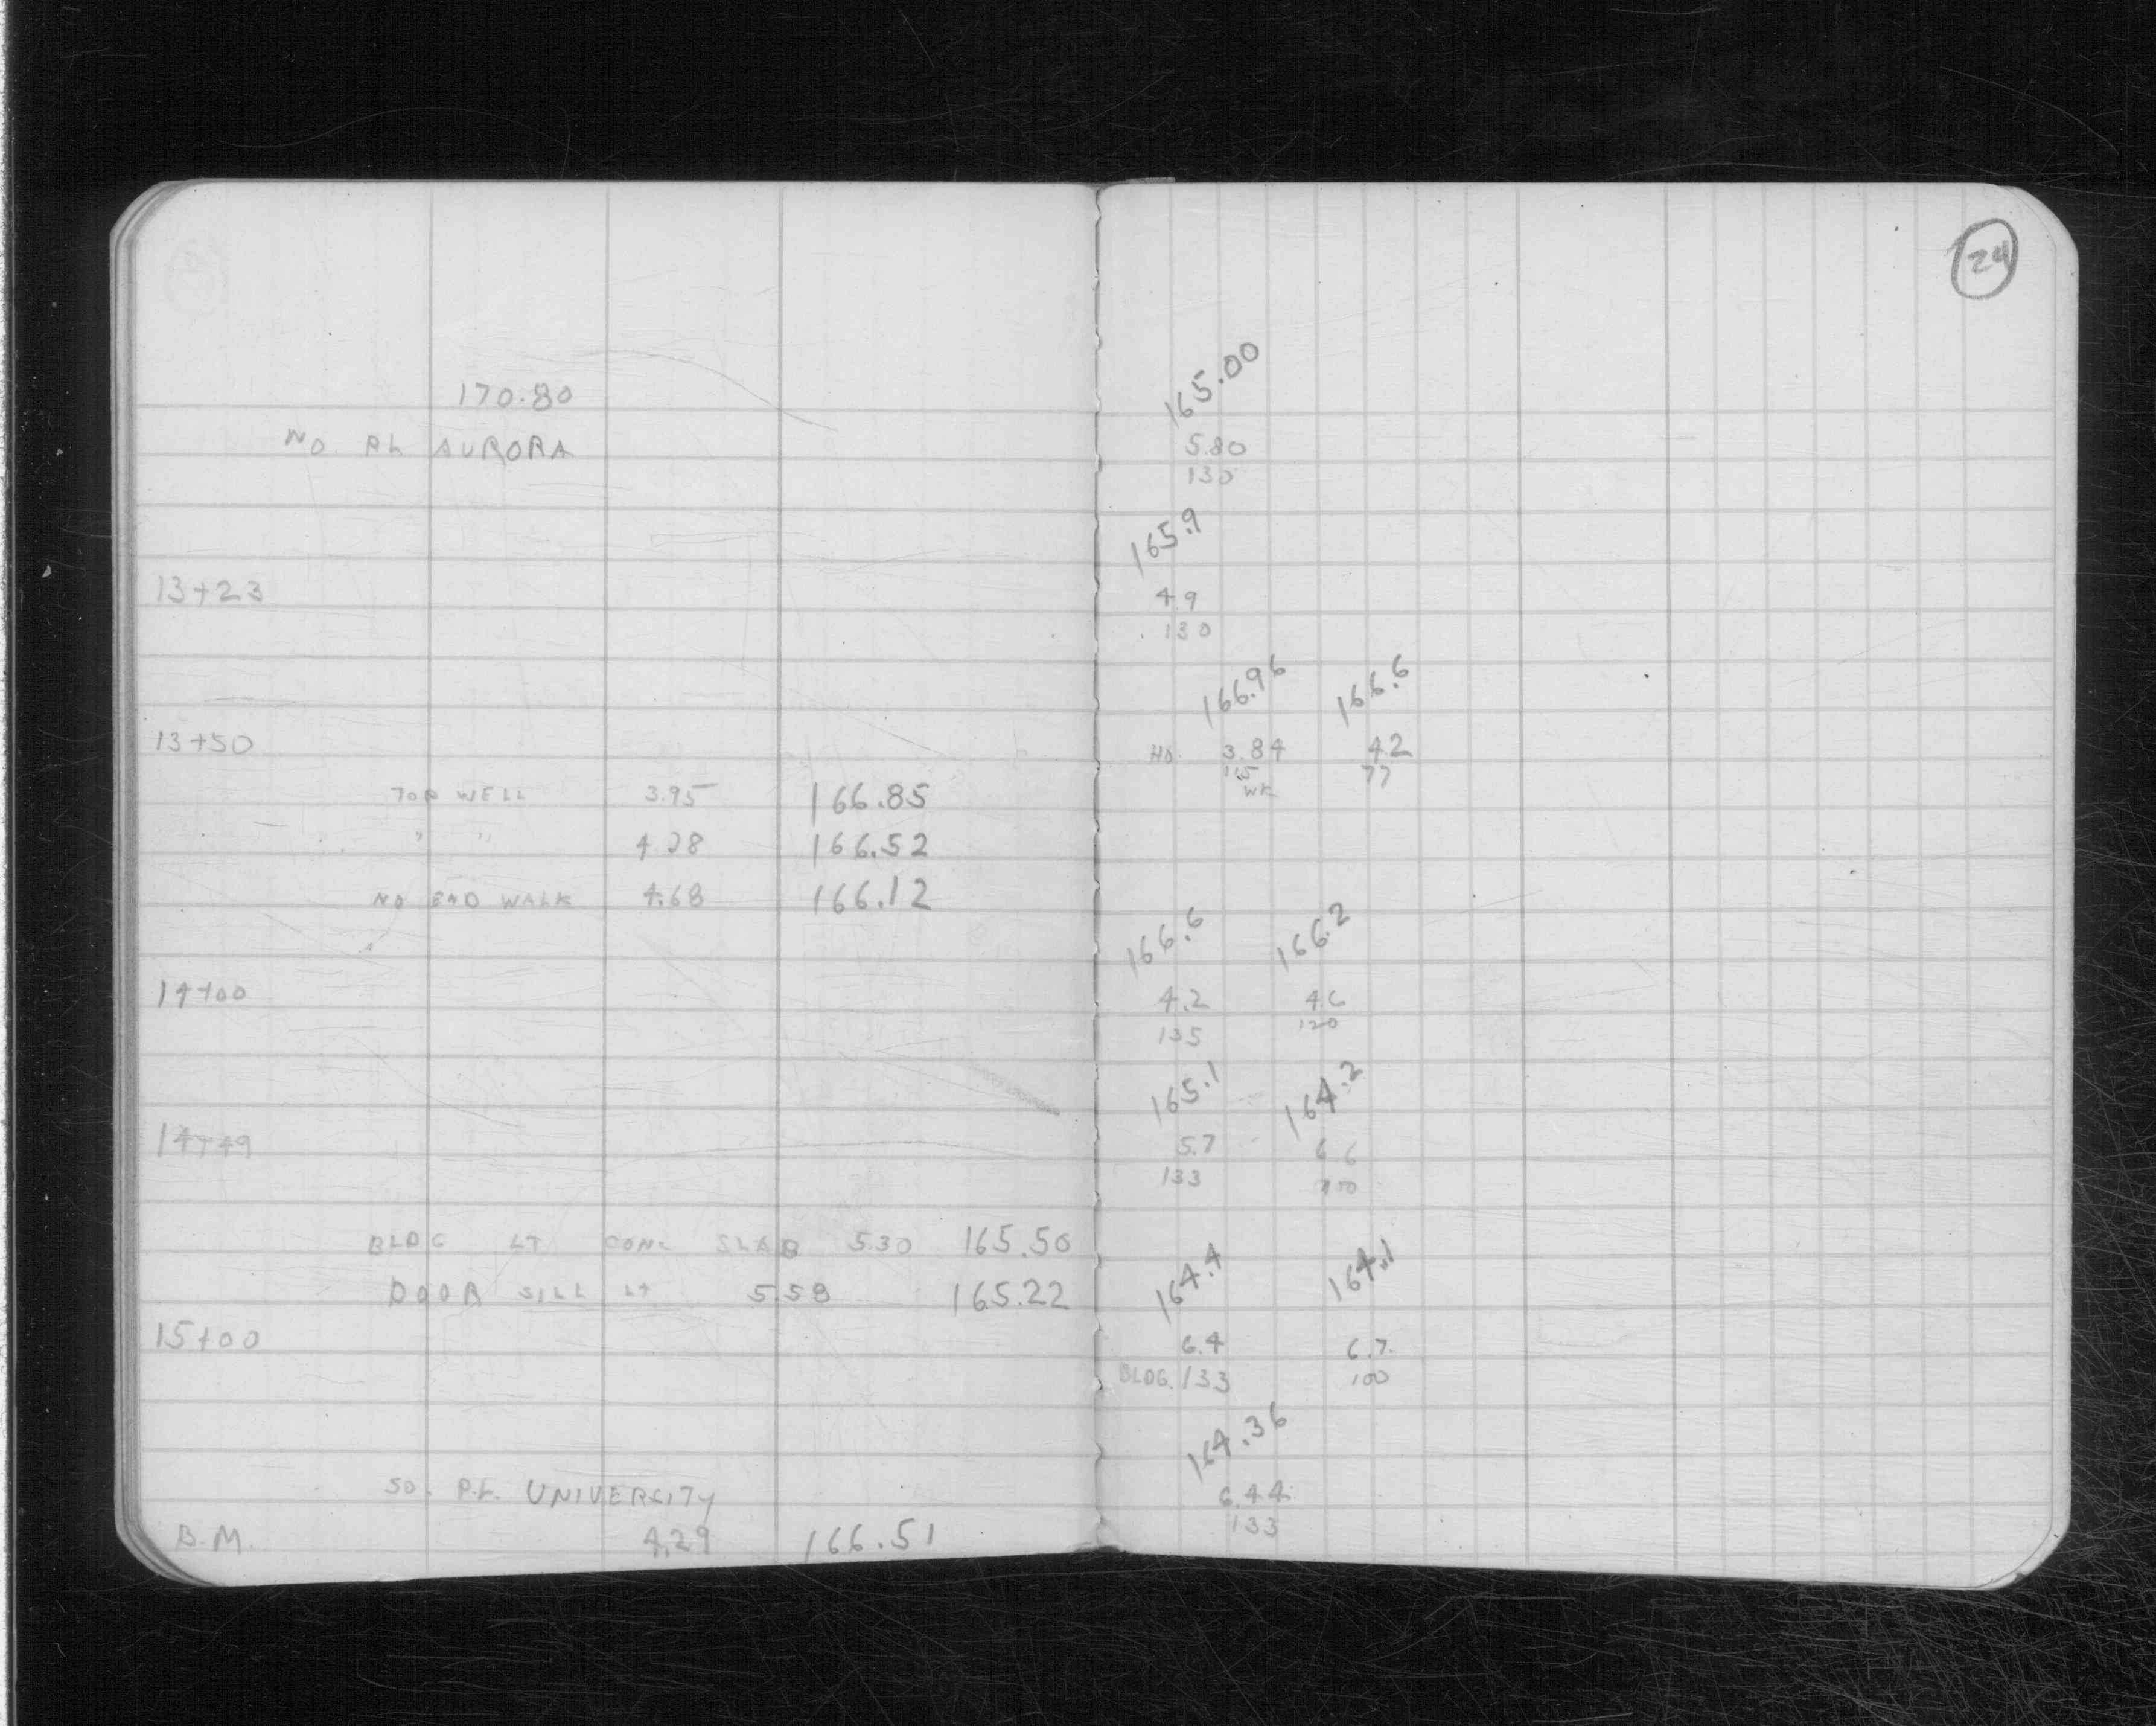 170.80
NO. P.L. AURORA
13+23
13+50
TOP WELL 3.95 166.85
" " 4.28 166.52
NO END WALK 4.68 166.12
14+00
14+49
BLDG LT CONC SLAB 5.30 165.50
DOOR SILL LT 5.58 165.22
15+00
SO. P.L. UNIVERSITY
B.M. 4.29 166.51
24
165.00
5.80
130
165.9
4.9
130
166.96 166.6
HO. 3.84 4.2
115 77
WK
166.6 166.2
4.2 4.6
135 120
165.1 164.2
5.7 6.6
133
164.4 164.1
6.4 6.7
BLDG. 133 100
164.36
6.44
133